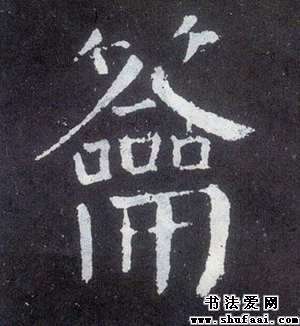 籥
书法爱网
www.shufaai.com